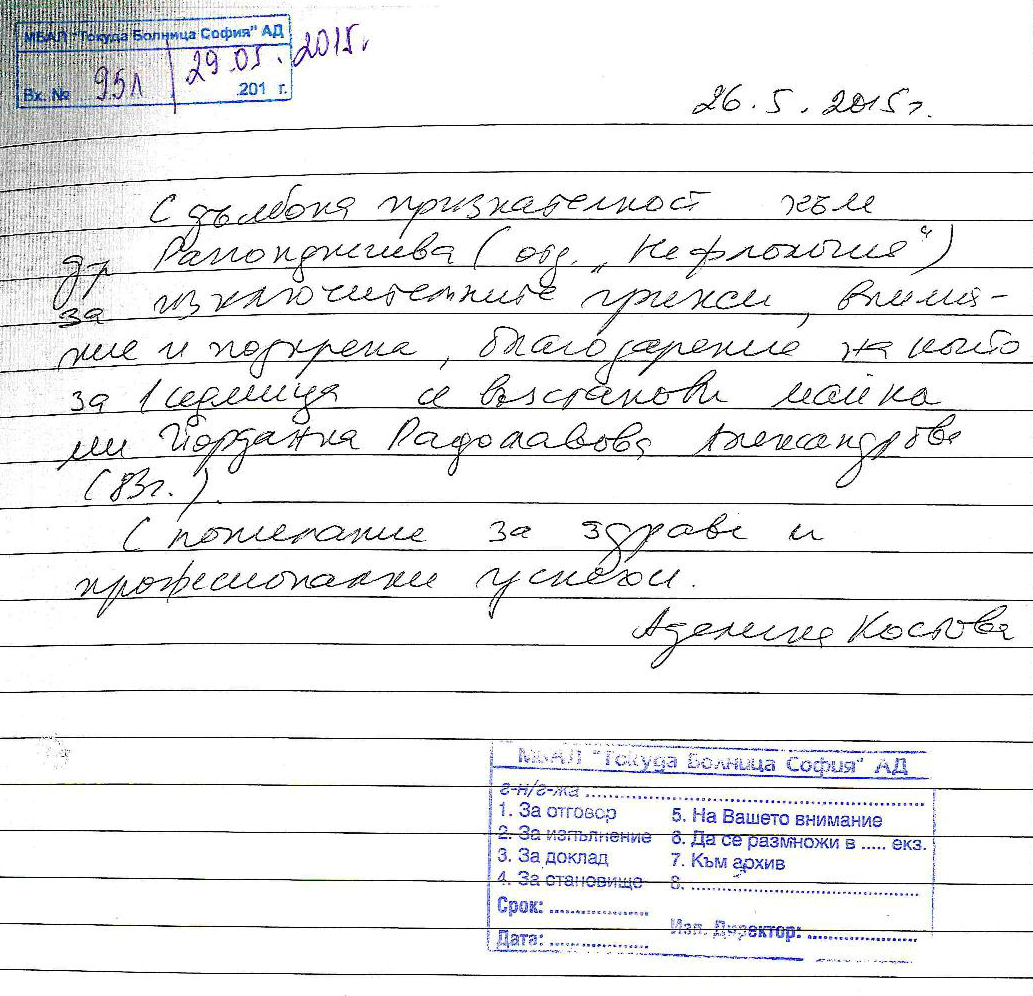 МБАЛ "Токуда Болница София" АД
29.05.2015г.
Вх. № 951 .201 г.
26.5.2015г.
С дълбока признателност към
д-р Рапонджиева (отд. „Нефрология“)
за изключителните грижи, внима-
ние и подкрепа, благодарение на които
за 1 седмица се възстанови майка
ми Йорданка Радославова Александрова
(83г.).
С пожелание за здраве и
професионални успехи.
Аделина Костова
МБАЛ "Токуда Болница София" АД
г-н/г-жа ..............................
1. За отговор 5. На Вашето внимание
2. За изпълнение 6. Да се размножи в ..... екз.
3. За доклад 7. Към архив
4. За становище 8. ..............................
Срок: ................
Изп. Директор: ................
Дата: ................